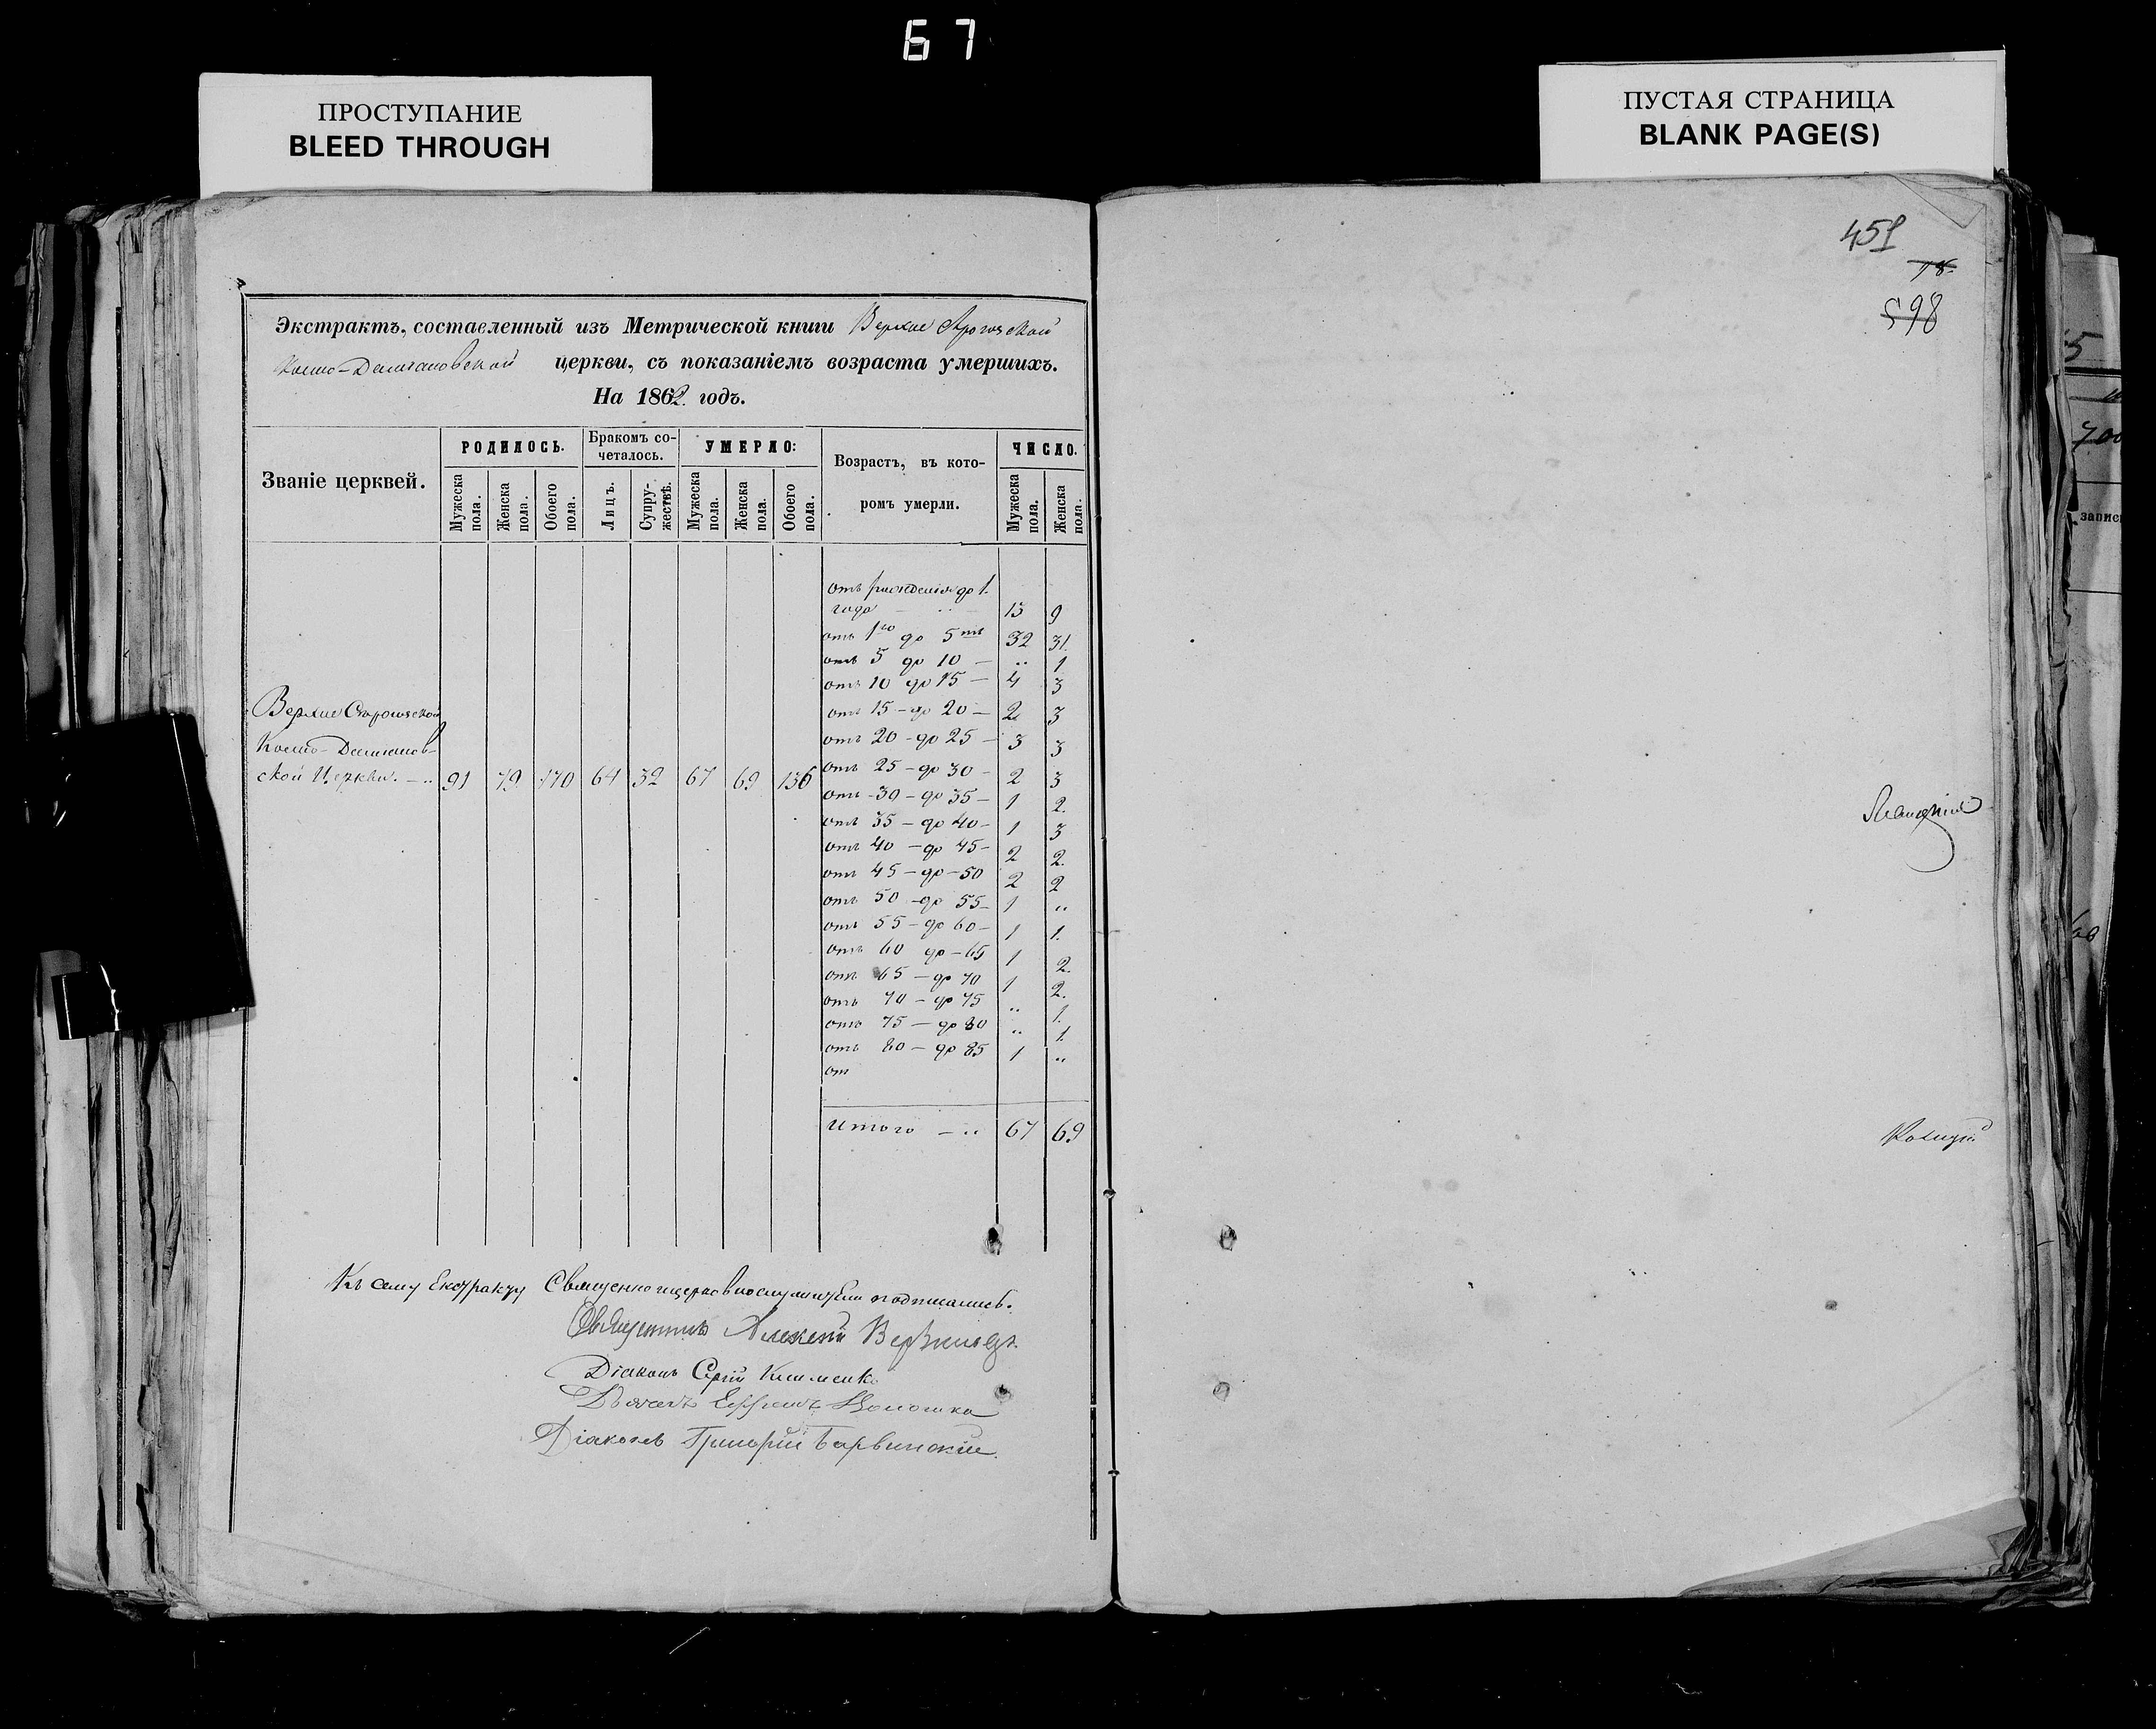 67
ПРОСТУПАНИЕ
BLEED THROUGH
ПУСТАЯ СТРАНИЦА
BLANK PAGE(S)
Экстрактъ, составленный изъ Метрической книги Верхне
Космо-Даміановской церкви, съ показаніемъ возраста умершихъ.
На 1862. годъ.
Званіе церквей.
РОДИЛОСЬ.
Бракомъ сочеталось.
УМЕРЛО:
Возрастъ, въ которомъ умерли.
ЧИСЛО.
Мужеска пола.
Женска пола.
Обоего пола.
Лицъ.
Супружествъ.
Мужеска пола.
Женска пола.
Обоего пола.
Мужеска пола.
Женска пола.
отъ рожденія до 1.
года 13 9
отъ 1го до 5ти 32 31.
отъ 5 до 10 — .. 1
отъ 10 до 15 — 4 3
отъ 15 — до 20 — 2 3
отъ 20 - до 25 — 3 3
отъ 25 — до 30 - 2 3
отъ 30 — до 35 — 1 2.
отъ 35 — до 40 - 1 3
отъ 40 — до 45 - 2 2.
отъ 45 — до — 50 2 2
отъ 50 - до 55 - 1 ..
отъ 55 — до 60 — 1 1.
отъ 60 до — 65 1 2.
отъ 65 — до 70 1 2.
отъ 70 — до 75 .. 1.
отъ 75 — до 80 .. 1.
отъ 80 — до 85 1 ..
от
Верхне
Космо-Даміанов-
ской Церкви. — .. 91 79 170 64 32 67 69 136
Итого — .. 67 69
Къ сему Екстракту Священноцерковнослужители подписались.
Священникъ Алексей
Діаконъ Сергій Клименко
Дьячекъ Ефимъ
Діаконъ Григорій Барвинскій.
451
78.
598
5
700
запис